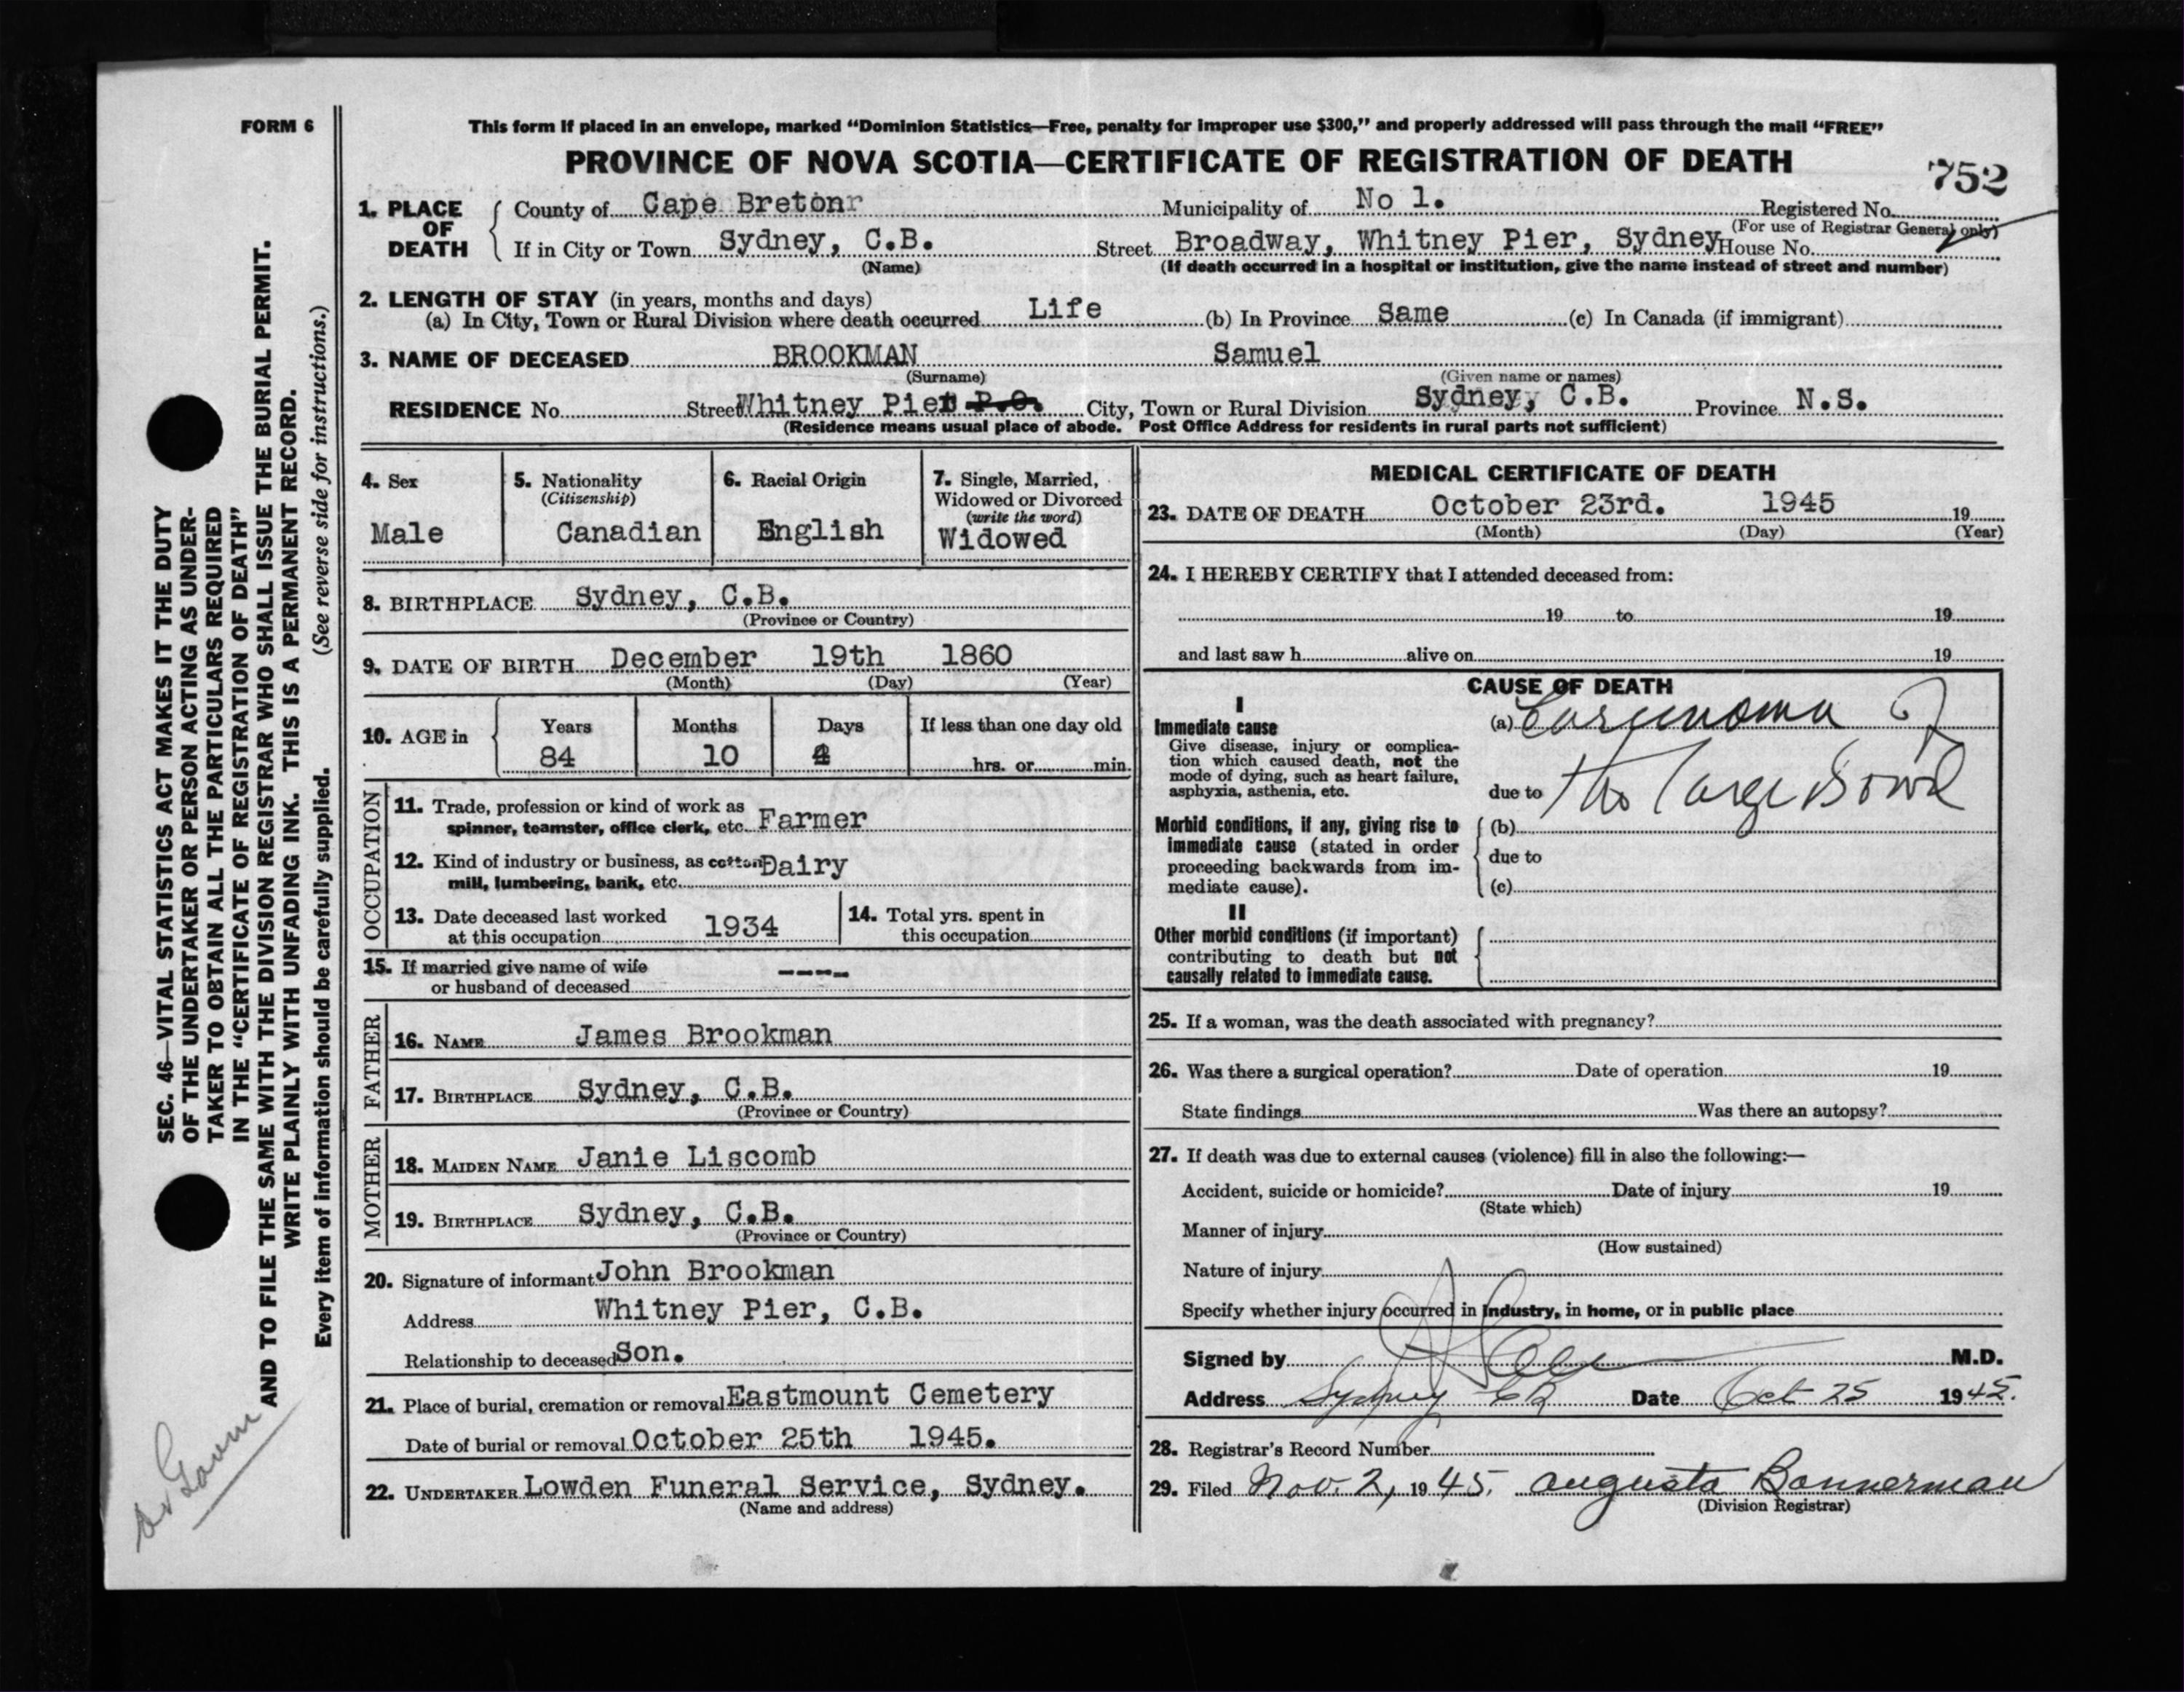 FORM 6
This form if placed in an envelope, marked "Dominion Statistics—Free, penalty for improper use $300," and properly addressed will pass through the mail "FREE"
PROVINCE OF NOVA SCOTIA—CERTIFICATE OF REGISTRATION OF DEATH
752
1. PLACE OF DEATH
County of Cape Bretonr Municipality of No 1. Registered No.
(For use of Registrar General only)
If in City or Town Sydney, C.B. Street Broadway, Whitney Pier, Sydney House No.
(Name) (If death occurred in a hospital or institution, give the name instead of street and number)
2. LENGTH OF STAY (in years, months and days)
(a) In City, Town or Rural Division where death occurred Life (b) In Province Same (c) In Canada (if immigrant)
3. NAME OF DECEASED BROOKMAN Samuel
(Surname) (Given name or names)
RESIDENCE No. Street Whitney Pier P.O. City, Town or Rural Division Sydney, C.B. Province N.S.
(Residence means usual place of abode. Post Office Address for residents in rural parts not sufficient)
4. Sex
Male
5. Nationality
(Citizenship)
Canadian
6. Racial Origin
English
7. Single, Married,
Widowed or Divorced
(write the word)
Widowed
8. BIRTHPLACE Sydney, C.B.
(Province or Country)
9. DATE OF BIRTH December 19th 1860
(Month) (Day) (Year)
10. AGE in
Years Months Days If less than one day old
84 10 4 hrs. or min.
OCCUPATION
11. Trade, profession or kind of work as
spinner, teamster, office clerk, etc. Farmer
12. Kind of industry or business, as cotton Dairy
mill, lumbering, bank, etc.
13. Date deceased last worked
at this occupation 1934
14. Total yrs. spent in
this occupation
15. If married give name of wife
or husband of deceased ----
FATHER
16. NAME James Brookman
17. BIRTHPLACE Sydney, C.B.
(Province or Country)
MOTHER
18. MAIDEN NAME Janie Liscomb
19. BIRTHPLACE Sydney, C.B.
(Province or Country)
20. Signature of informant John Brookman
Address Whitney Pier, C.B.
Relationship to deceased Son.
21. Place of burial, cremation or removal Eastmount Cemetery
Date of burial or removal October 25th 1945.
22. UNDERTAKER Lowden Funeral Service, Sydney.
(Name and address)
MEDICAL CERTIFICATE OF DEATH
23. DATE OF DEATH October 23rd. 1945 19
(Month) (Day) (Year)
24. I HEREBY CERTIFY that I attended deceased from:
19 to 19
and last saw h alive on 19
CAUSE OF DEATH
I
Immediate cause
Give disease, injury or complica-
tion which caused death, not the
mode of dying, such as heart failure,
asphyxia, asthenia, etc.
(a) Carcinoma of
due to the large Bowel
Morbid conditions, if any, giving rise to
immediate cause (stated in order
proceeding backwards from im-
mediate cause).
(b)
due to
(c)
II
Other morbid conditions (if important)
contributing to death but not
causally related to immediate cause.
25. If a woman, was the death associated with pregnancy?
26. Was there a surgical operation? Date of operation 19
State findings Was there an autopsy?
27. If death was due to external causes (violence) fill in also the following:—
Accident, suicide or homicide? Date of injury 19
(State which)
Manner of injury
(How sustained)
Nature of injury
Specify whether injury occurred in industry, in home, or in public place
Signed by M.D.
Address Sydney CB Date Oct 25 1945.
28. Registrar's Record Number
29. Filed Nov. 2, 1945. Augusta Bannerman
(Division Registrar)
SEC. 46—VITAL STATISTICS ACT MAKES IT THE DUTY
OF THE UNDERTAKER OR PERSON ACTING AS UNDER-
TAKER TO OBTAIN ALL THE PARTICULARS REQUIRED
IN THE "CERTIFICATE OF REGISTRATION OF DEATH"
AND TO FILE THE SAME WITH THE DIVISION REGISTRAR WHO SHALL ISSUE THE BURIAL PERMIT.
WRITE PLAINLY WITH UNFADING INK. THIS IS A PERMANENT RECORD.
Every item of information should be carefully supplied. (See reverse side for instructions.)